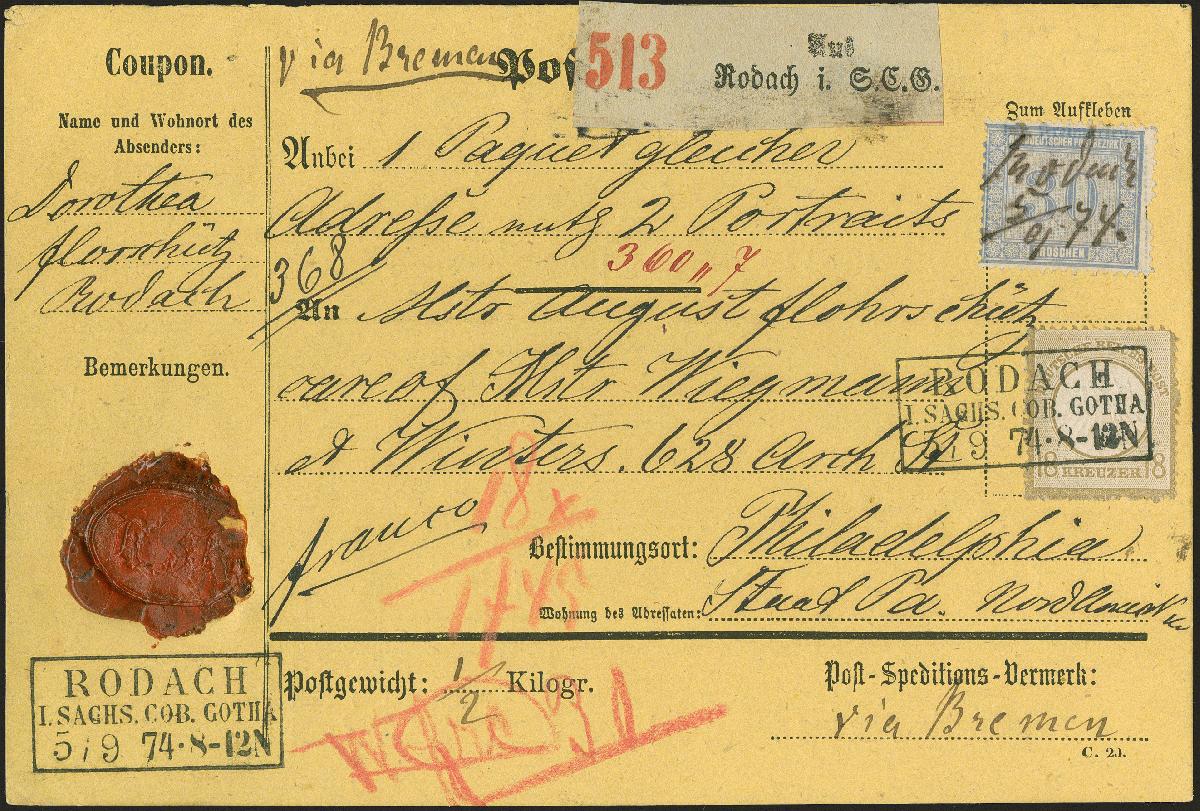 Coupon.
Name und Wohnort des
Absenders:
Dorothea
Florschütz
Rodach
Bemerkungen.
RODACH
I. SACHS. COB. GOTHA
5 9 74·8-12N
via Bremen
Pos
513
Aus
Rodach i. S.C.G.
Zum Aufkleben
Anbei 1 Paquet gleicher
Adresse 2 Portraits
360 7
368
An Mstr August Flohrschütz
care of Mstr Wiegmann
et Winters. 628 Arch St
franco
18 x
Bestimmungsort: Philadelphia
Wohnung des Adressaten: Staat Pa.
Postgewicht: 1/2 Kilogr.
Post-Speditions-Vermerk:
via Bremen
C. 21.
Rodach
5/9 74.
GROSCHEN
RODACH
I. SACHS. COB. GOTHA
5 9 74·8-12N
18 KREUZER 18